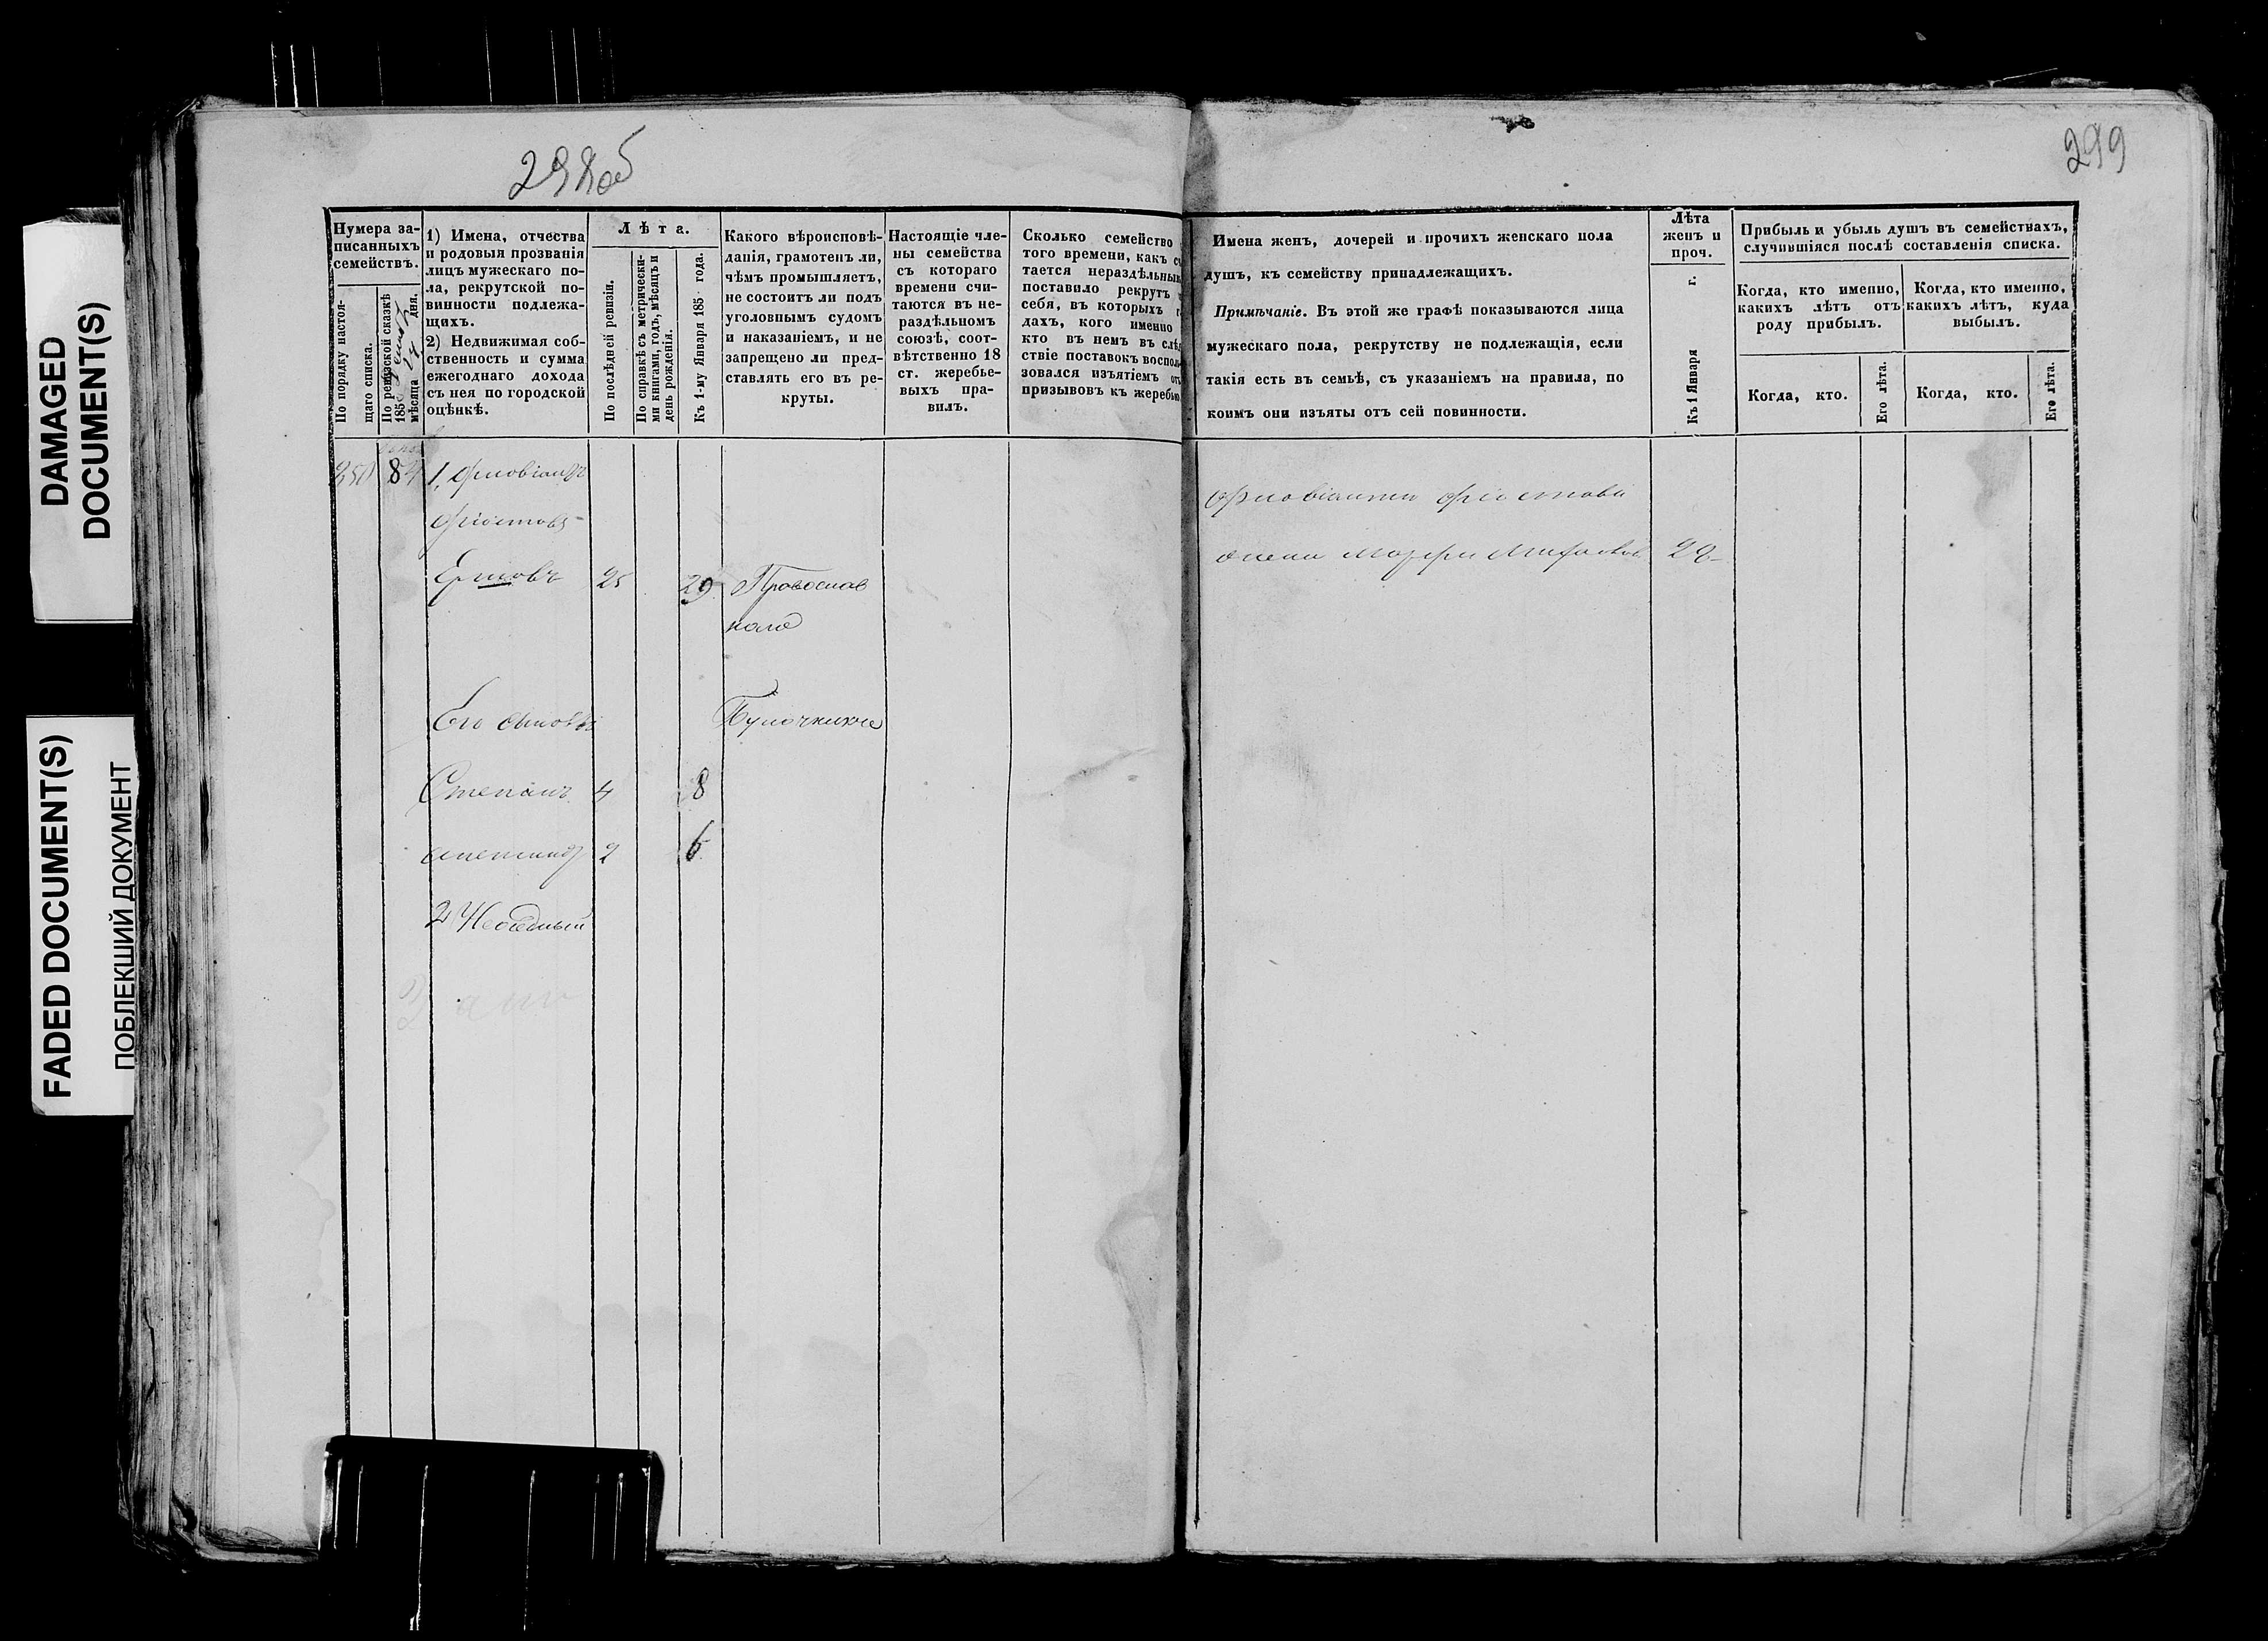 DAMAGED
DOCUMENT(S)
FADED DOCUMENT(S)
ПОБЛЕКШИЙ ДОКУМЕНТ
298об
299
Нумера за-
писанныхъ
семействъ.
По порядку настоя-
щаго списка.
По ревизской сказкѣ
185
мѣсяца дня.
1) Имена, отчества
и родовыя прозванія
лицъ мужескаго по-
ла, рекрутской по-
винности подлежа-
щихъ.
2) Недвижимая соб-
ственность и сумма
ежегоднаго дохода
съ нея по городской
оцѣнкѣ.
Лѣта.
По послѣдней ревизіи.
По справкѣ съ метрически-
ми книгами, годъ, мѣсяцъ и
день рожденія.
Къ 1-му Января 185 года.
Какого вѣроисповѣ-
данія, грамотенъ ли,
чѣмъ промышляетъ,
не состоитъ ли подъ
уголовнымъ судомъ
и наказаніемъ, и не
запрещено ли пред-
ставлять его въ ре-
круты.
Настоящіе чле-
ны семейства
съ котораго
времени счи-
таются въ не-
раздѣльномъ
союзѣ, соот-
вѣтственно 18
ст. жеребье-
выхъ пра-
вилъ.
Сколько семейство
того времени, какъ
тается нераздѣльны
поставило рекрутъ
себя, въ которыхъ
дахъ, кого именно
кто въ немъ въ слѣд
ствіе поставокъ воспол
зовался изъятіемъ от
призывовъ къ жеребью
Имена женъ, дочерей и прочихъ женскаго пола
душъ, къ семейству принадлежащихъ.
Примѣчаніе. Въ этой же графѣ показываются лица
мужескаго пола, рекрутству не подлежащія, если
такія есть въ семьѣ, съ указаніемъ на правила, по
коимъ они изъяты отъ сей повинности.
Лѣта
женъ и
проч.
Къ 1 Января г.
Прибыль и убыль душъ въ семействахъ,
случившіяся послѣ составленія списка.
Когда, кто именно,
какихъ лѣтъ отъ
роду прибылъ.
Когда, кто именно,
какихъ лѣтъ, куда
выбылъ.
Когда, кто.
Его лѣта.
Когда, кто.
Его лѣта.
350 84 1,
25 29 Православ
наго
Его сыновья
Степанъ 4 8
2 6
2
28